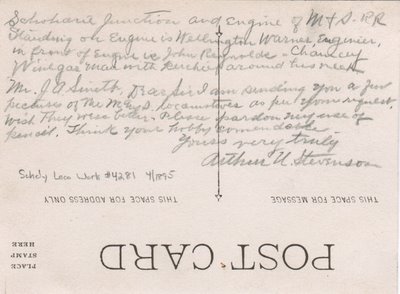 Schoharie Junction and Engine of M & S. RR
Standing on Engine is Wellington Warner, Engenier,
in front of Engine is John Reynolds - Chancey
Vinegar man with kerchief around his neck
Mr. J A Smith, Dear Sir I am sending you a few
pictures of the M & S locomotives as per your request.
Wish they were better. Please pardon my use of
pencil. I think your hobby commendable
Yours very truly
Arthur U Stevenson
Schdy Loco Work #4281 4/1895
THIS SPACE FOR ADDRESS ONLY
THIS SPACE FOR MESSAGE
POST CARD
PLACE
STAMP
HERE